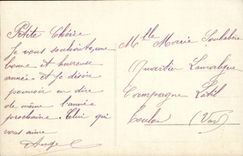 Petite Chérie
Je vous souhaite une
bonne et heureuse
année et je désire
pouvoir en dire
de même l'année
prochaine. Celui qui
vous aime
Ange
Mlle Marie
Quartier
Campagne
Toulon (Var)